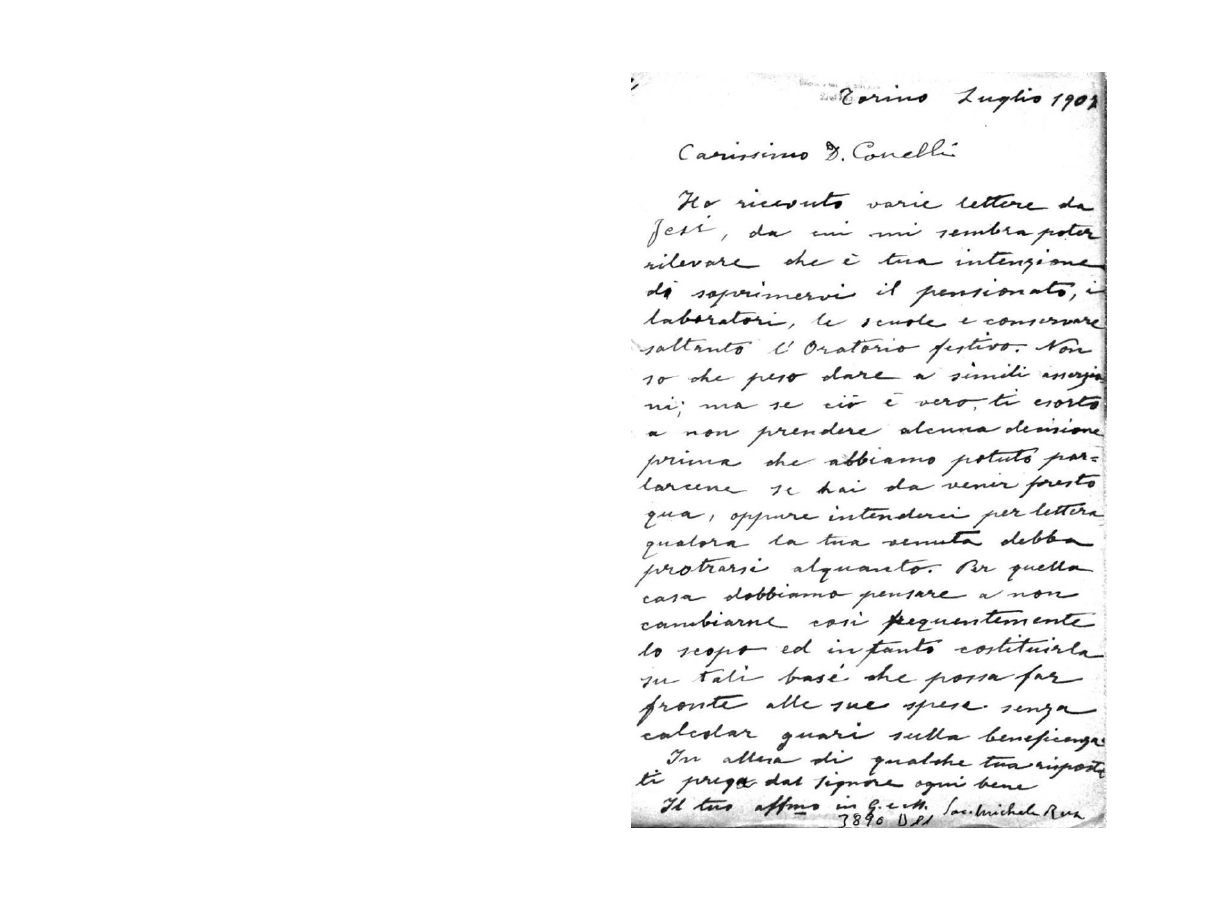 Torino Luglio 1902
Carissimo D. Conelli
Ho ricevuto varie lettere da
Jesi, da cui mi sembra poter
rilevare che è tua intenzione
di soprimervi il pensionato, i
laboratori, le scuole e conservare
soltanto l'Oratorio festivo. Non
so che peso dare a simili asserzio
ni; ma se ciò è vero, ti esorto
a non prendere alcuna decisione
prima che abbiamo potuto par=
larcene se hai da venir presto
qua, oppure intenderci per lettera
qualora la tua venuta debba
protrarsi alquanto. Per quella
casa dobbiamo pensare a non
cambiarne così frequentemente
lo scopo ed in tanto costituirla
su tali basi che possa far
fronte alle sue spese senza
calcolar guari sulla beneficenza.
In attesa di qualche tua risposta
ti prega dal Signore ogni bene
Il tuo affmo in G. e M. Sac. Michele Rua
3890